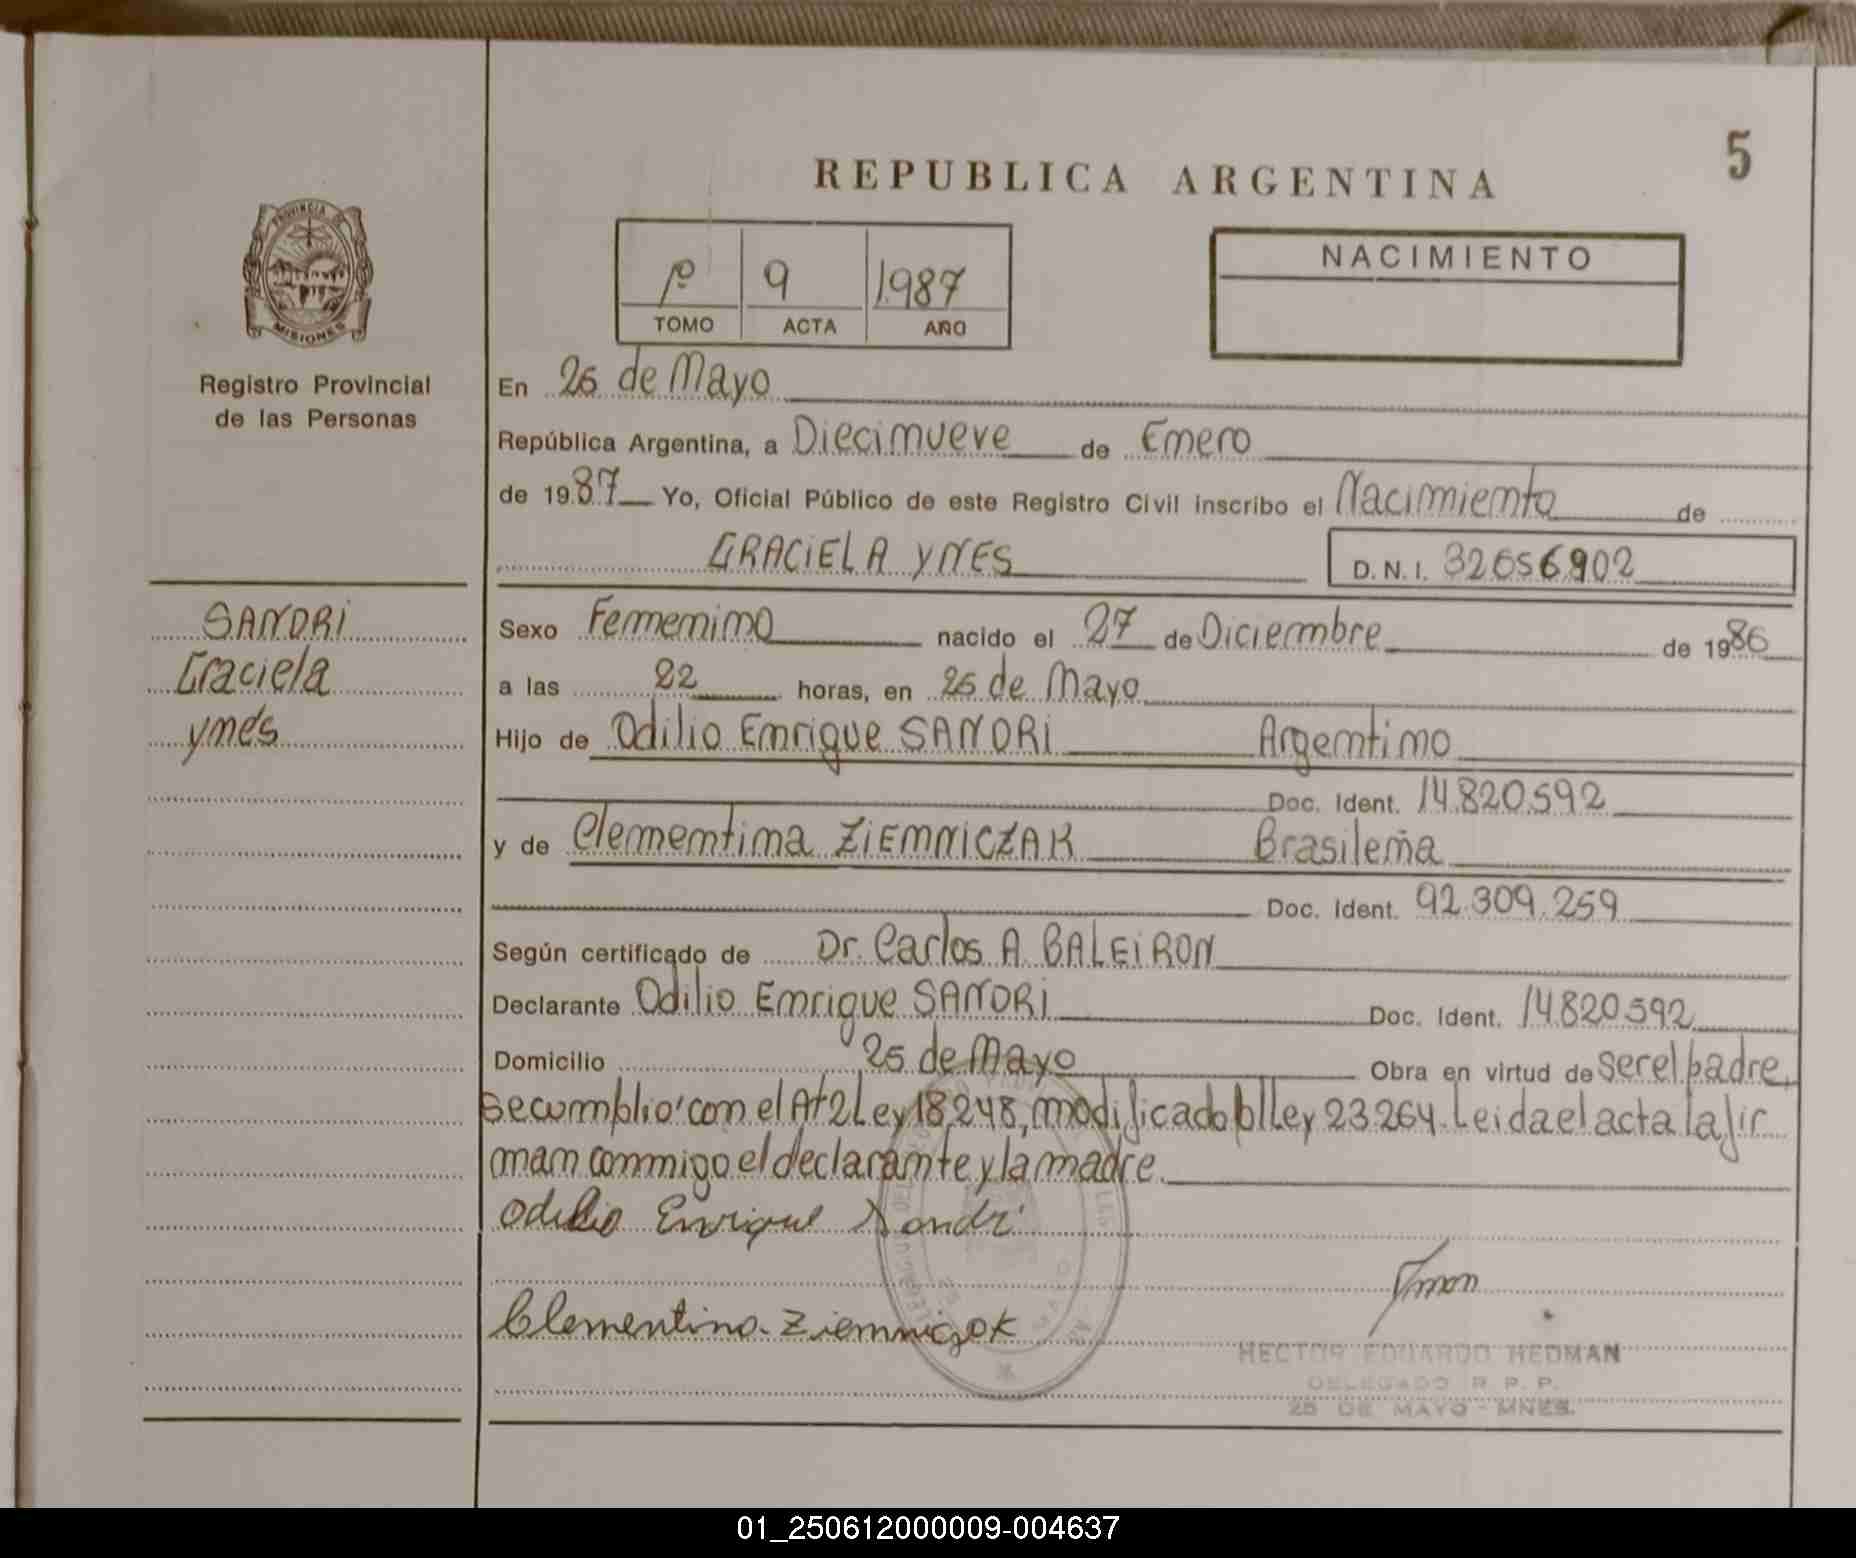 5
REPUBLICA ARGENTINA
PROVINCIA DE
MISIONES
Registro Provincial
de las Personas
1º 9 1.987
TOMO ACTA AÑO
NACIMIENTO
En 25 de Mayo
República Argentina, a Diecinueve de Enero
de 1987 Yo, Oficial Público de este Registro Civil inscribo el Nacimiento de
GRACIELA YNES D.N.I. 32656902
SANDRI
Graciela
Ynés
Sexo Femenino nacido el 27 de Diciembre de 1986
a las 22 horas, en 25 de Mayo
Hijo de Odilio Enrique SANDRI Argentino
Doc. Ident. 14.820.592
y de Clementina ZIEMNICZAK Brasileña
Doc. Ident. 92.309.259
Según certificado de Dr. Carlos A. BALEIRON
Declarante Odilio Enrique SANDRI Doc. Ident. 14.820.592
Domicilio 25 de Mayo Obra en virtud de ser el padre,
se cumplio' con el At 2 Ley 18.248, modificado p/ Ley 23.264. Leida el acta la fir
man conmigo el declarante y la madre.
Odilio Enrique Sandri
Clementina Ziemniczak
HECTOR EDUARDO HEDMAN
DELEGADO R. P. P.
25 DE MAYO - MNES.
01_250612000009-004637